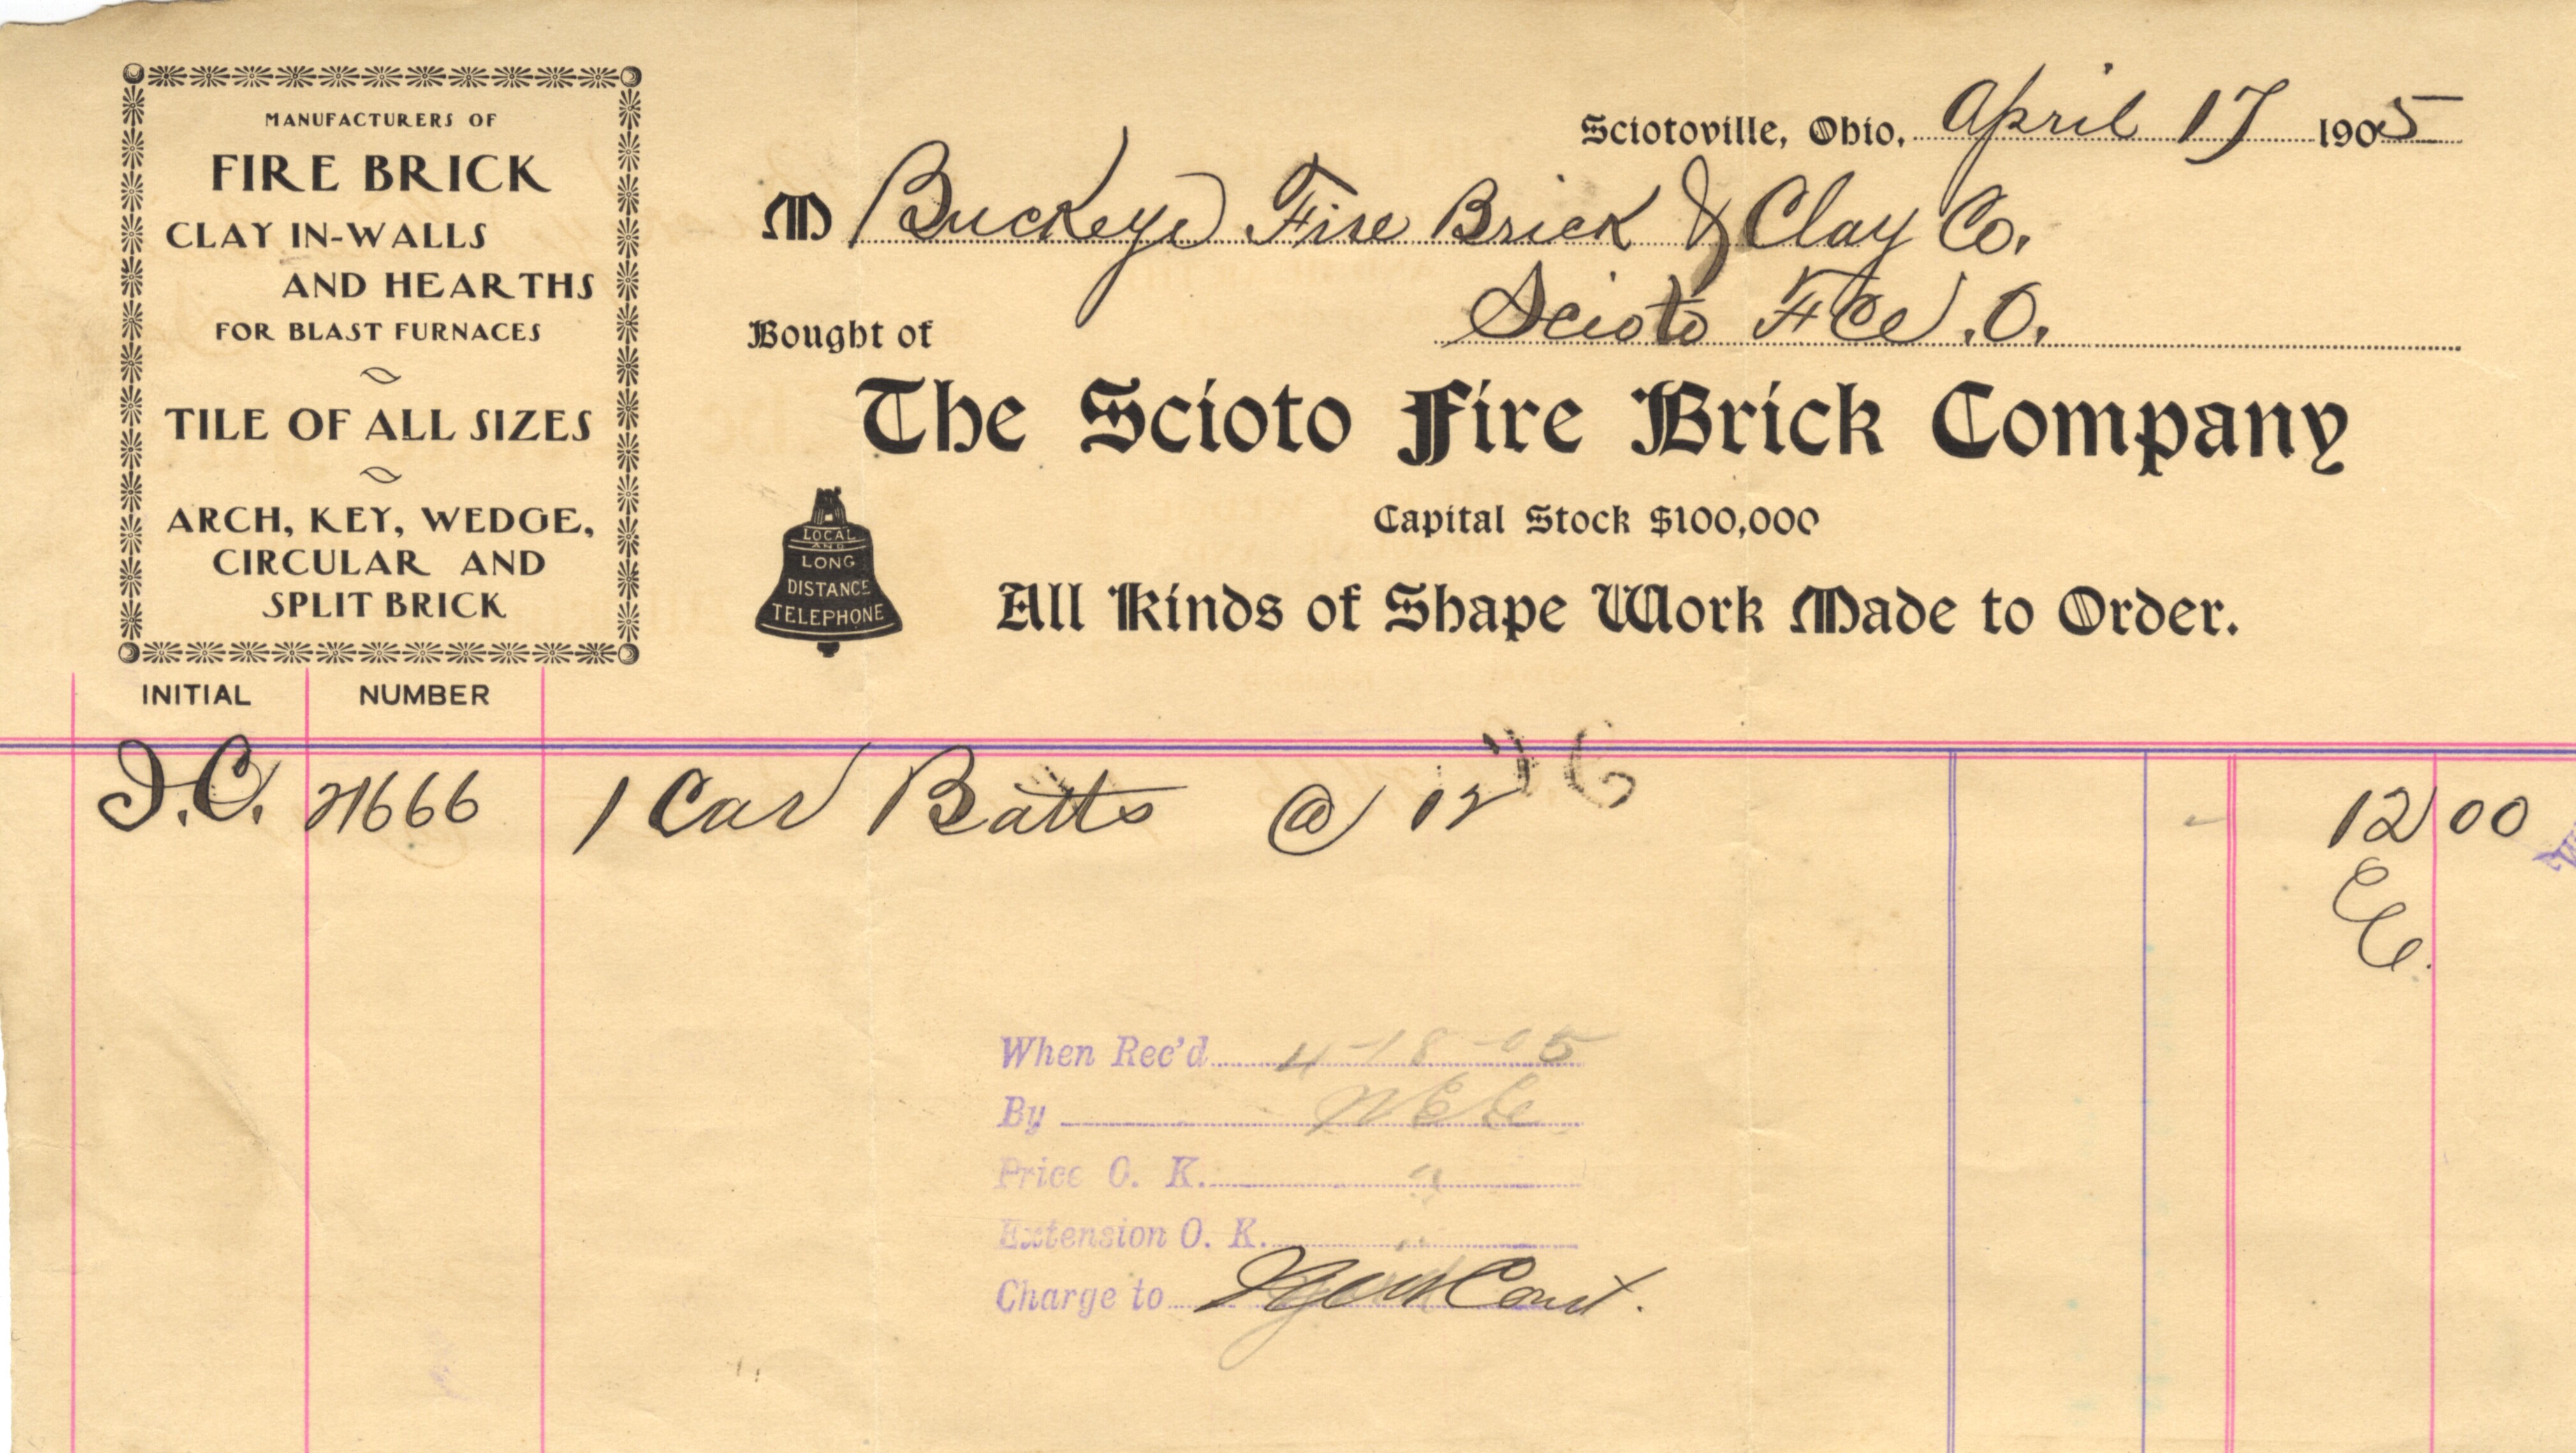 MANUFACTURERS OF
FIRE BRICK
CLAY IN-WALLS
AND HEARTHS
FOR BLAST FURNACES
TILE OF ALL SIZES
ARCH, KEY, WEDGE,
CIRCULAR AND
SPLIT BRICK
Sciotoville, Ohio, April 17 1905
M Buckeye Fire Brick & Clay Co.
Scioto Fce. O.
Bought of
The Scioto Fire Brick Company
Capital Stock $100,000
LOCAL
AND
LONG
DISTANCE
TELEPHONE
All Kinds of Shape Work Made to Order.
INITIAL NUMBER
I.C. 21666 1 Car Batts @ 12 12 00
When Rec'd 4-18-05
By
Price O. K.
Extension O. K.
Charge to New Const.